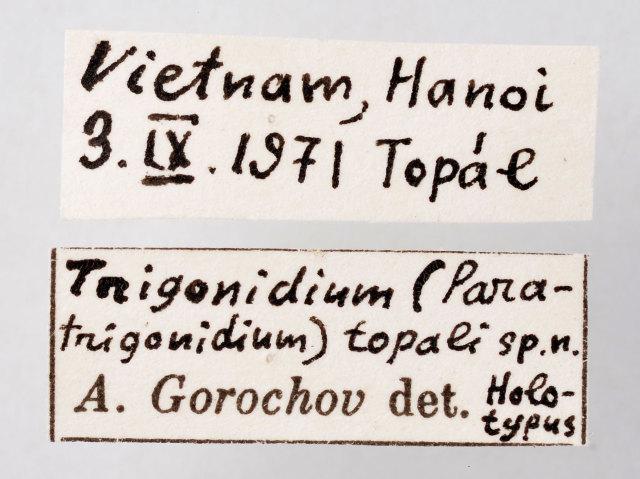 Vietnam, Hanoi
3. IX. 1971 Topál
Trigonidium (Para-
trigonidium) topali sp.n.
A. Gorochov det. Holo-
typus